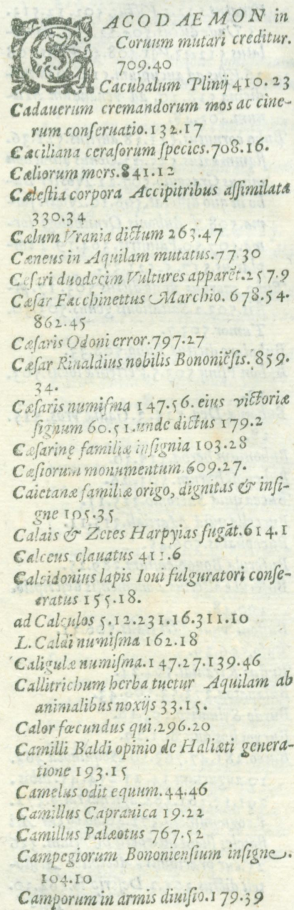 CACODAEMON in
Coruum mutari creditur.
709.40
Cacubalum Plinij 410.23
Cadauerum cremandorum mos ac cine-
rum conseruatio. 132.17
Cæciliana cerasorum species. 708.16.
Cæliorum mors. 841.12
Cælestia corpora Accipitribus assimilata
330.34
Cælum Vrania dictum 263.47
Cæneus in Aquilam mutatus. 77.30
Cesari duodecim Vultures apparēt. 257.9
Cæsar Facchinettus Marchio. 678.54.
862.45
Cæsaris Odoni error. 797.27
Cæsar Rinaldius nobilis Bononiēsis. 859.
34.
Cæsaris numisma 147.56. eius victoriæ
signum 60.51. unde dictus 179.2
Cæsarinæ familiæ insignia 103.28
Cæsiorum monumentum 609.27.
Caietanæ familiæ origo, dignitas & insi-
gne 105.35
Calais & Zetes Harpyias fugāt. 614.1
Calceus clauatus 411.6
Calcidonius lapis Ioui fulguratori conse-
cratus 155.18.
ad Calculos 5.12.231.16.311.10
L. Caldi numisma 162.18
Caligulæ numisma. 147.27.139.46
Callitrichum herba tuetur Aquilam ab
animalibus noxijs 33.15.
Calor fœcundus qui. 296.20
Camilli Baldi opinio de Haliæti genera-
tione 193.15
Camelus odit equum. 44.46
Camillus Capranica 19.22
Camillus Palæotus 767.52
Campegiorum Bononiensium insigne.
104.10
Camporum in armis diuisio. 179.39